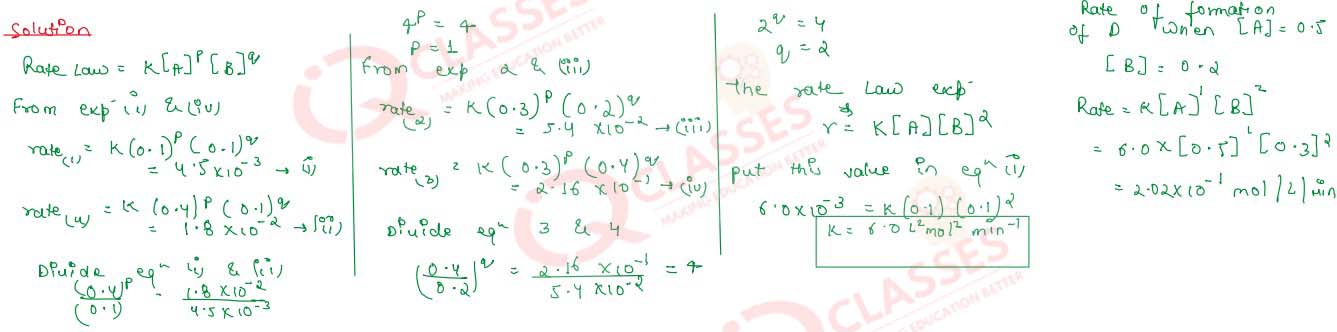 Solution
Rate Law = K[A]^p [B]^q
From exp (i) & (iv)
rate(1) = K(0.1)^p (0.1)^q
= 4.5 x 10^-3 → (i)
rate(4) = K (0.4)^p (0.1)^q
= 1.8 x 10^-2 → (ii)
Divide eqn (i) & (ii)
(0.4)^p / (0.1) = 1.8 x 10^-2 / 4.5 x 10^-3
4^p = 4
P = 1
From exp 2 & (iii)
rate(2) = K(0.3)^p (0.2)^q
= 5.4 x 10^-2 → (iii)
rate(3) = K (0.3)^p (0.4)^q
= 2.16 x 10^-1 → (iv)
Divide eqn 3 & 4
(0.4 / 0.2)^q = 2.16 x 10^-1 / 5.4 x 10^-2 = 4
2^q = 4
q = 2
The rate Law exp
r = K[A][B]^2
put this value in eqn (i)
6.0 x 10^-3 = K(0.1) (0.1)^2
K = 6.0 L^2 mol^2 min^-1
Rate of formation
of D when [A] = 0.5
[B] = 0.2
Rate = K[A]^1 [B]^2
= 6.0 x [0.5]^1 [0.3]^2
= 2.02 x 10^-1 mol / L / Min
IQ CLASSES
MAKING EDUCATION BETTER